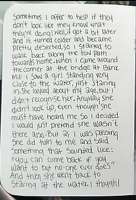 Sometimes I offer to help if they
don't look like they know what
they're doing. And it got a bit later
and it turned colder and became
pretty deserted, so I started to
walk back along the bay path
towards home. When I came around
the corner at the bridge at
I saw a girl standing very
close to the water, just staring
in. She looked about my age, but I
didn't recognise her. Anyway she
didn't look up, even though she
must have heard me, so I decided
I would just pretend she wasn't
there. And But as I was passing
she did turn to me and said
something that sounded like:
"you can come back if you
want to but no-one ever does"
And then she went back to
staring at the water. I thought